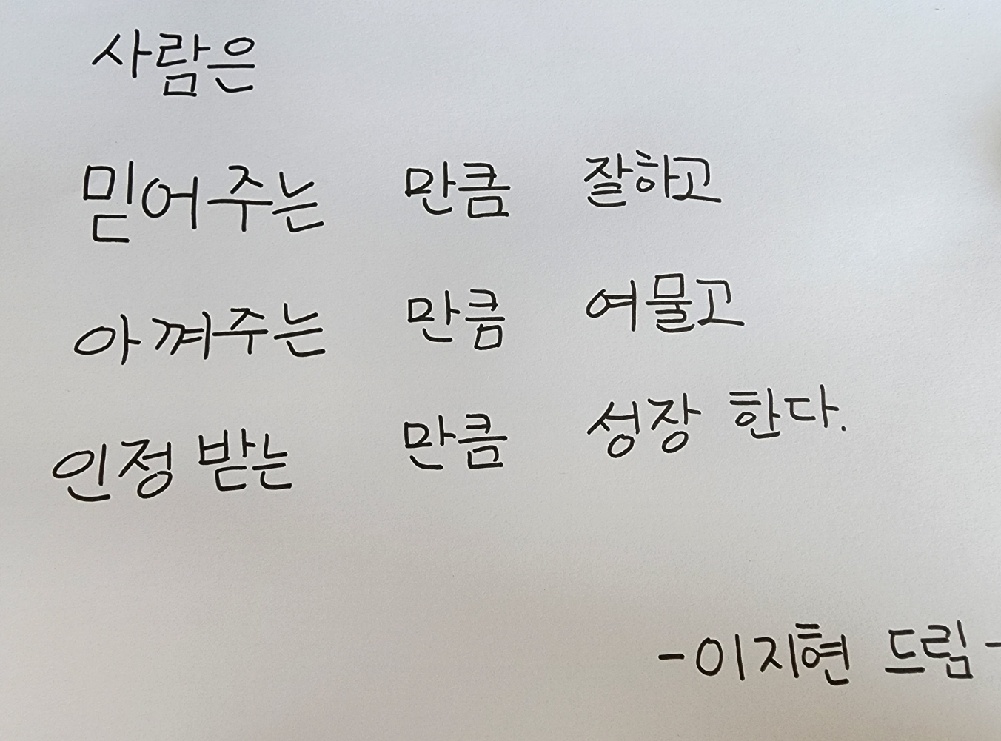 사람은
믿어주는 만큼 잘하고
아껴주는 만큼 여물고
인정 받는 만큼 성장 한다.
-이지현 드림-